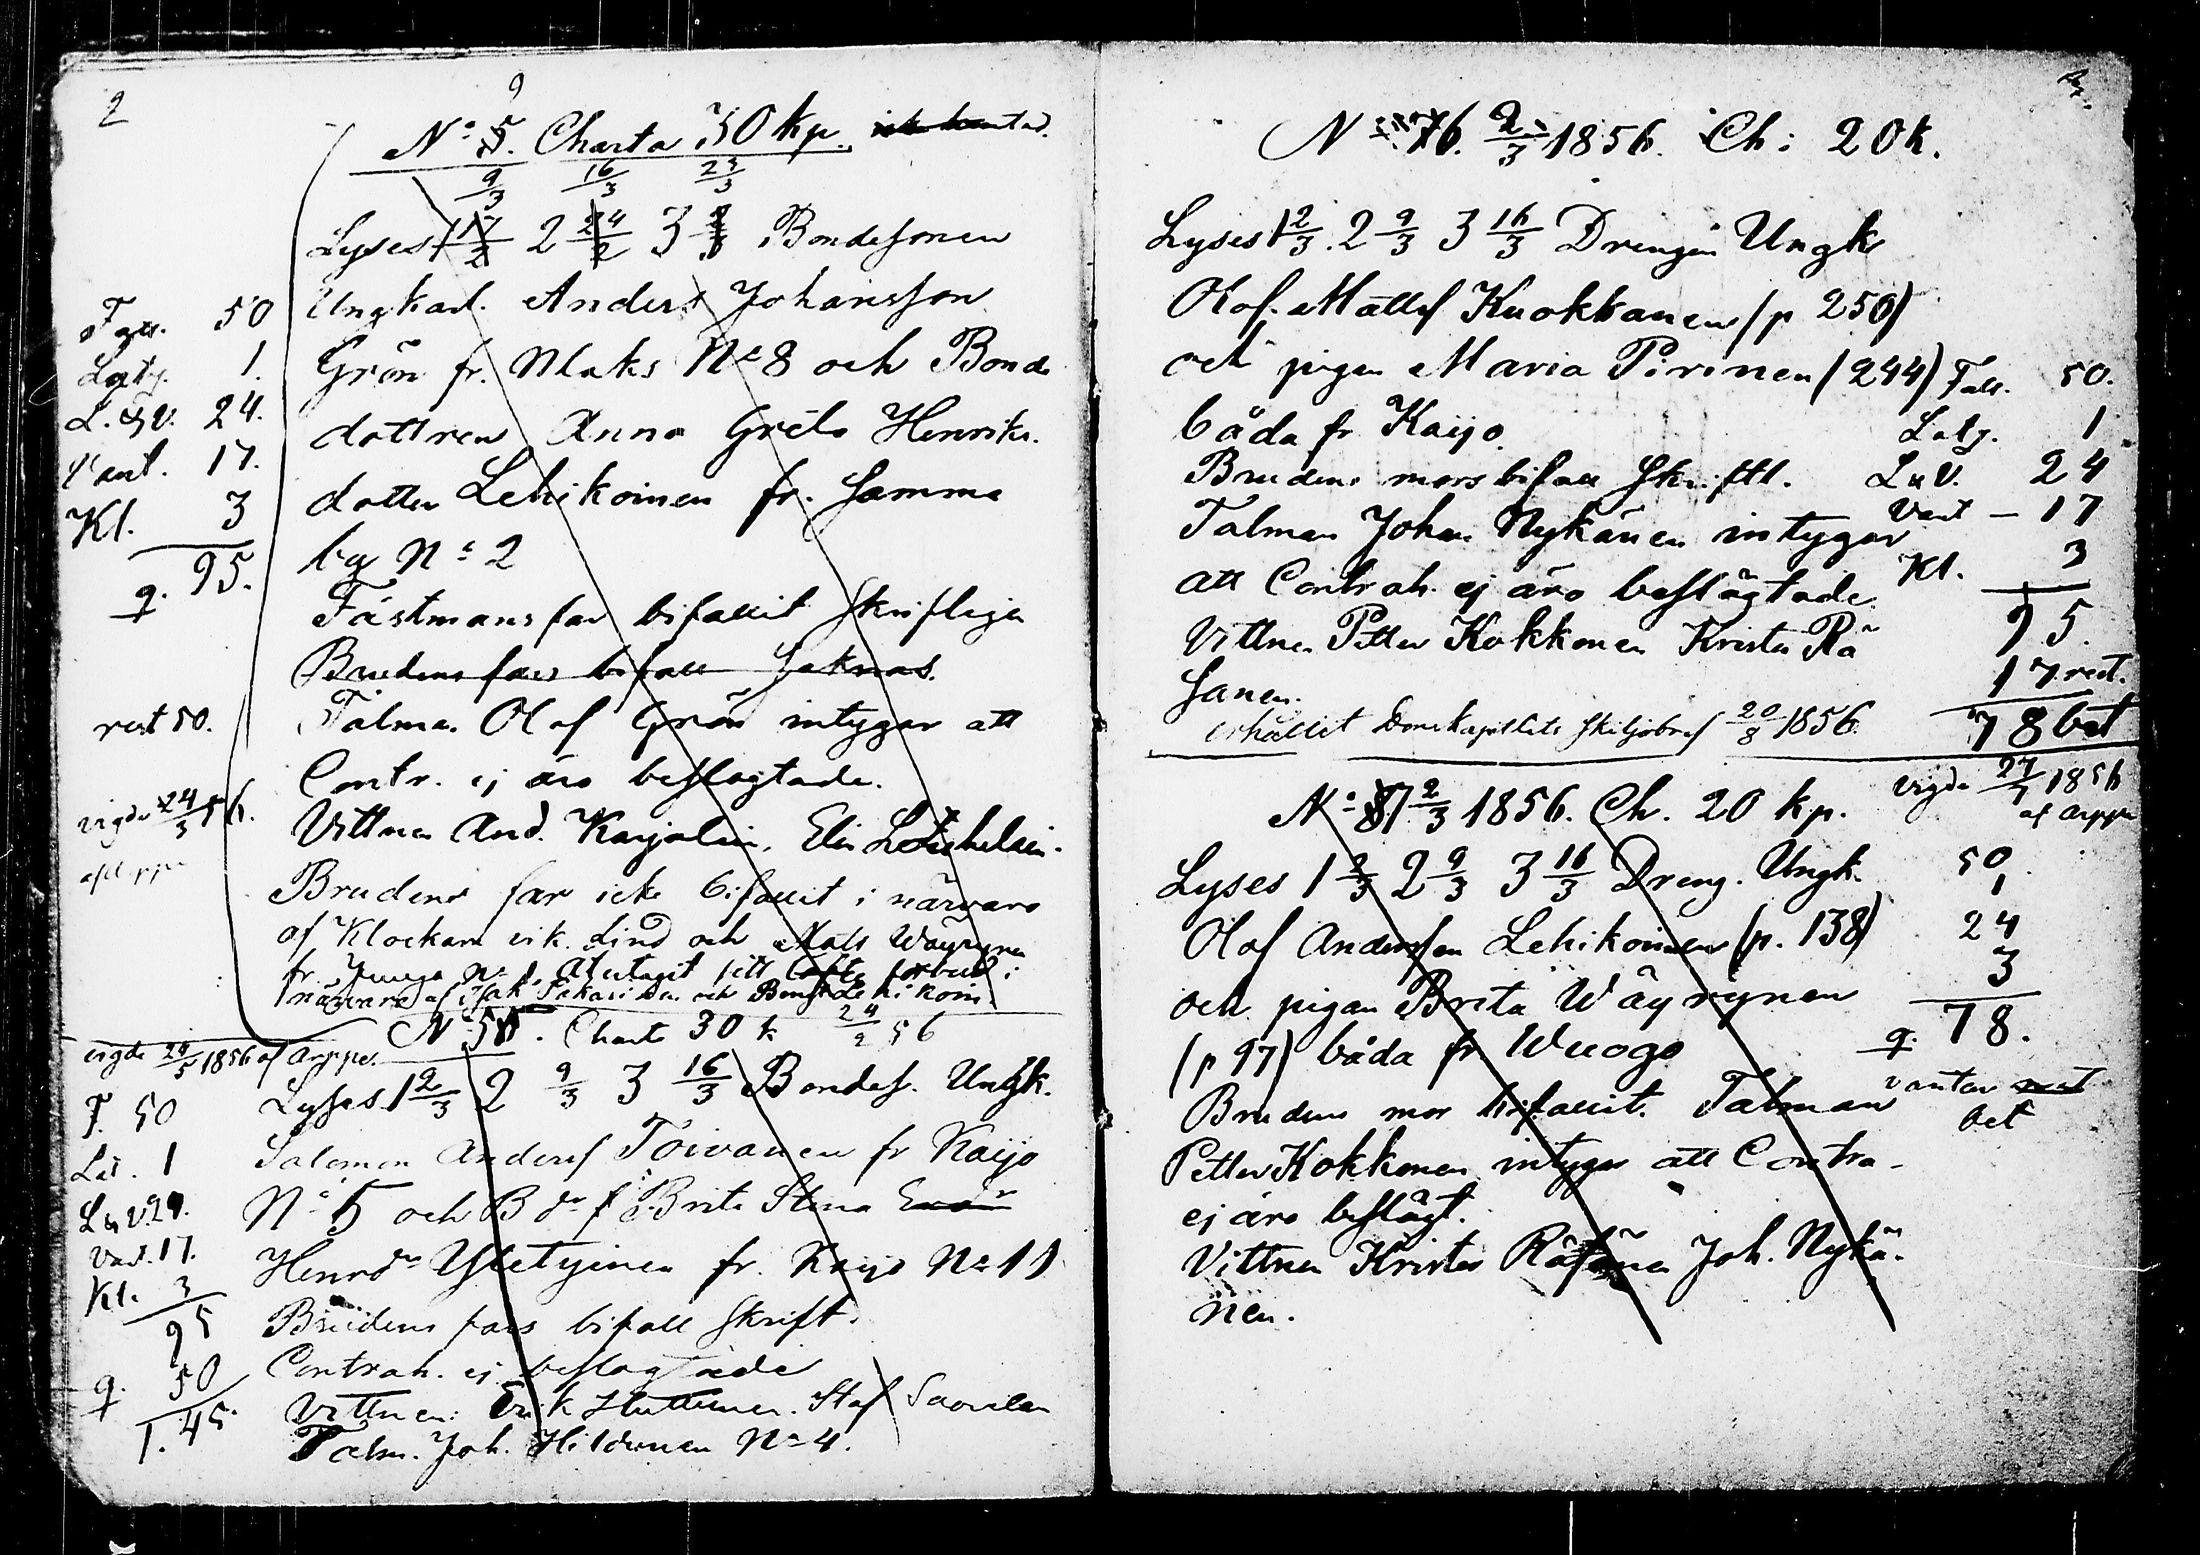 2
9
N:o 5. Charta 30 kp.
9/3 16/3 23/3
Lyses 1 17/2 2 24/2 3 2/3 Bondesonen
Ungkarl. Anders Johansson
Grön fr. Maks N:o 8 och Bonde
dottren Anna Greta Henriks.
dotter Lehikoinen fr. samma
by N:o 2
Fästmans far bifallit skriftligen
Brudens fars bifall saknas.
Talma. Olof Grön intygar att
Contr. ej äro beslägtade.
Vittnen And. Karjalain. Elis
Brudens far icke bifallit i närvaro
af Klockare vik. Lind och Mats Wäyrynen
fr. N:o 1. Återtagit sitt förbud i
närvaro af Isak och Bengt Lehikoin.
F 50
1.
L. & V. 24.
Vant. 17.
Kl. 3
q. 95.
rest 50.
vigde 24/3 56.
af Arppe
N:o 5. Charta 30 k 24/2 56
vigde 1856 af Arppe.
Lyses 1 2/3 2 9/3 3 16/3 Bondes. Ungk.
Salomon Anders Toivanen fr Kaijo
N:o 5 och B dr f Brita Stina
Henr dr fr. Kaijo N:o 11
Brudens fars bifall skrift.
Contrah. ej beslägtade
Vittnen: Erik Huttunen. Staf
Talm. Joh. Hildunen N:o 4.
F. 50
1
L & V 24.
Vant. 17.
Kl. 3
95
q. 50
1.45.
N 6. 2/3 1856. Ch: 20 k.
Lyses 1 2/3. 2 9/3 3 16/3 Drengen Ungk
Olof Matts Kuokkanen (p 250)
och pigan Maria Pirinen (244)
båda fr Kaijo
Brudens mors bifall skriftl.
Talman Johan Nykänen intygar
att Contrah. ej äro beslägtade.
Vittnen Petter Kokkonen Krister Rä
sänen.
erhållit Domkapitlets skiljobref 20/8 1856.
50.
1
L & V. 24
Vant – 17
Kl. 3
95.
17 rest.
78 bet
vigde 1856
af Arppe
N:o 7 2/3 1856. Ch. 20 kp.
Lyses 1 2/3 2 9/3 3 16/3 Dreng. Ungk.
Olof Andersson Lehikoinen (p. 138)
och pigan Brita Wäyrynen
(p 97) båda fr Wuogo
Brudens mor bifallit. Talman
Petter Kokkonen intygar att Contra-
ej äro beslägt.
Vittnen Krister Räsänen Joh. Nykä-
nen.
50.
1
24
3
q. 78.
vanten rest
bet